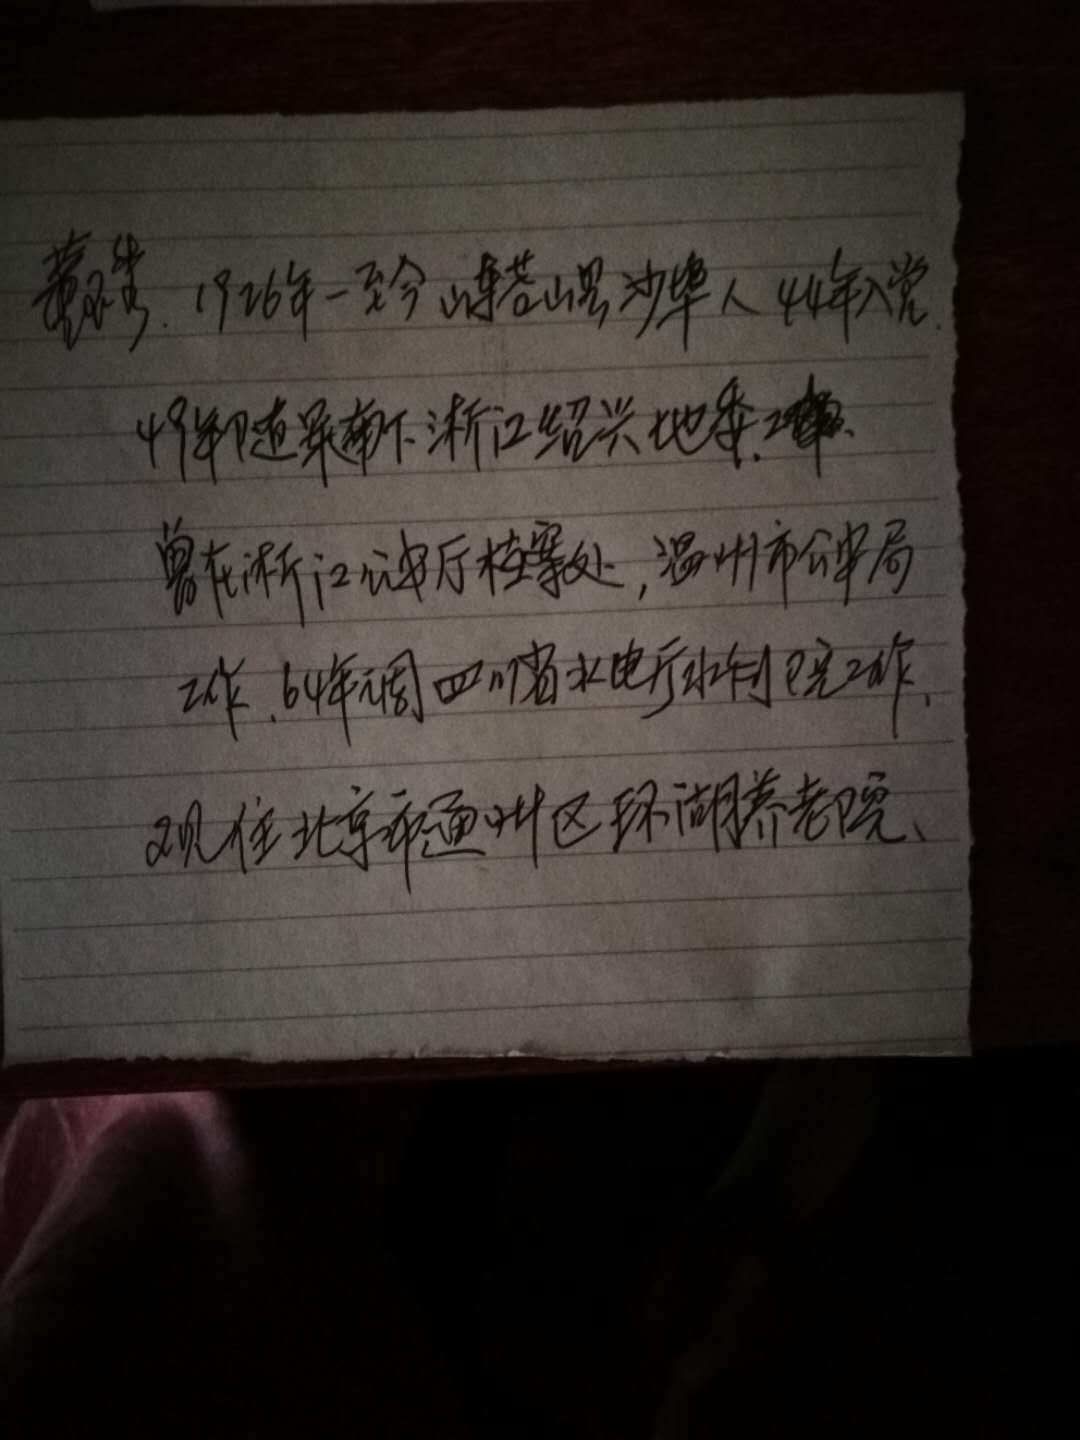 1926年-至今 山东苍山县沙埠人 44年入党.
49年随军南下浙江绍兴地委.
曾在浙江公安厅档案处,温州市公安局
工作.64年调四川省水电厅水利院工作.
现住北京市通州区环湖养老院、